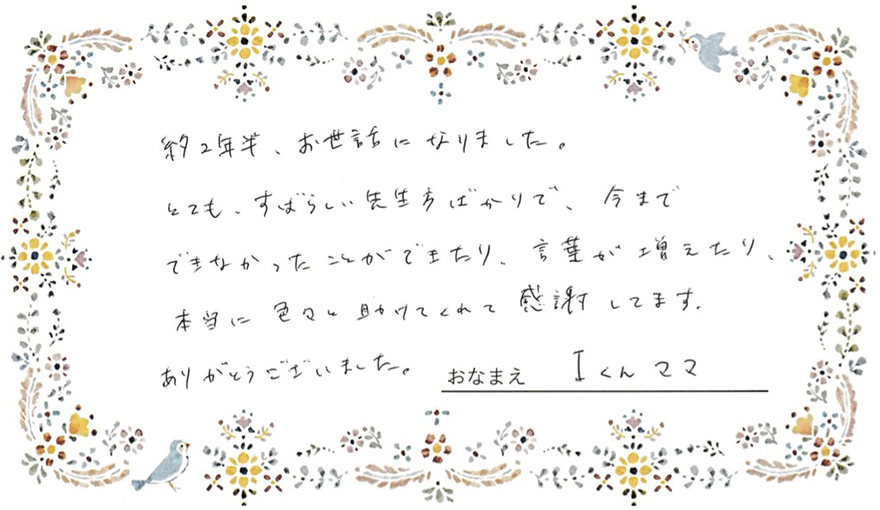 約2年半、お世話になりました。
とても、すばらしい先生方ばかりで、今まで
できなかったことができたり、言葉が増えたり、
本当に色々と助けてくれて感謝してます。
ありがとうございました。
おなまえ Iくんママ